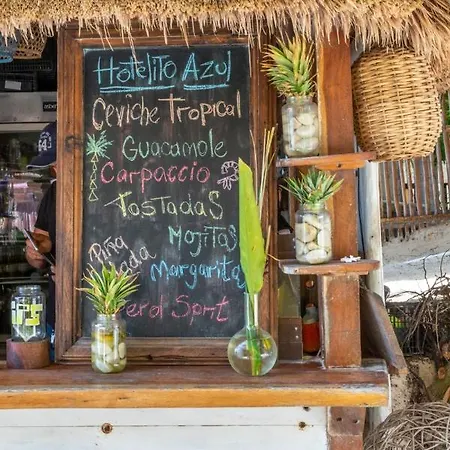 Hotelito Azul
Ceviche Tropical
Guacamole
Carpaccio
Tostadas
Mojitas
Piña
Margarita
Sprit